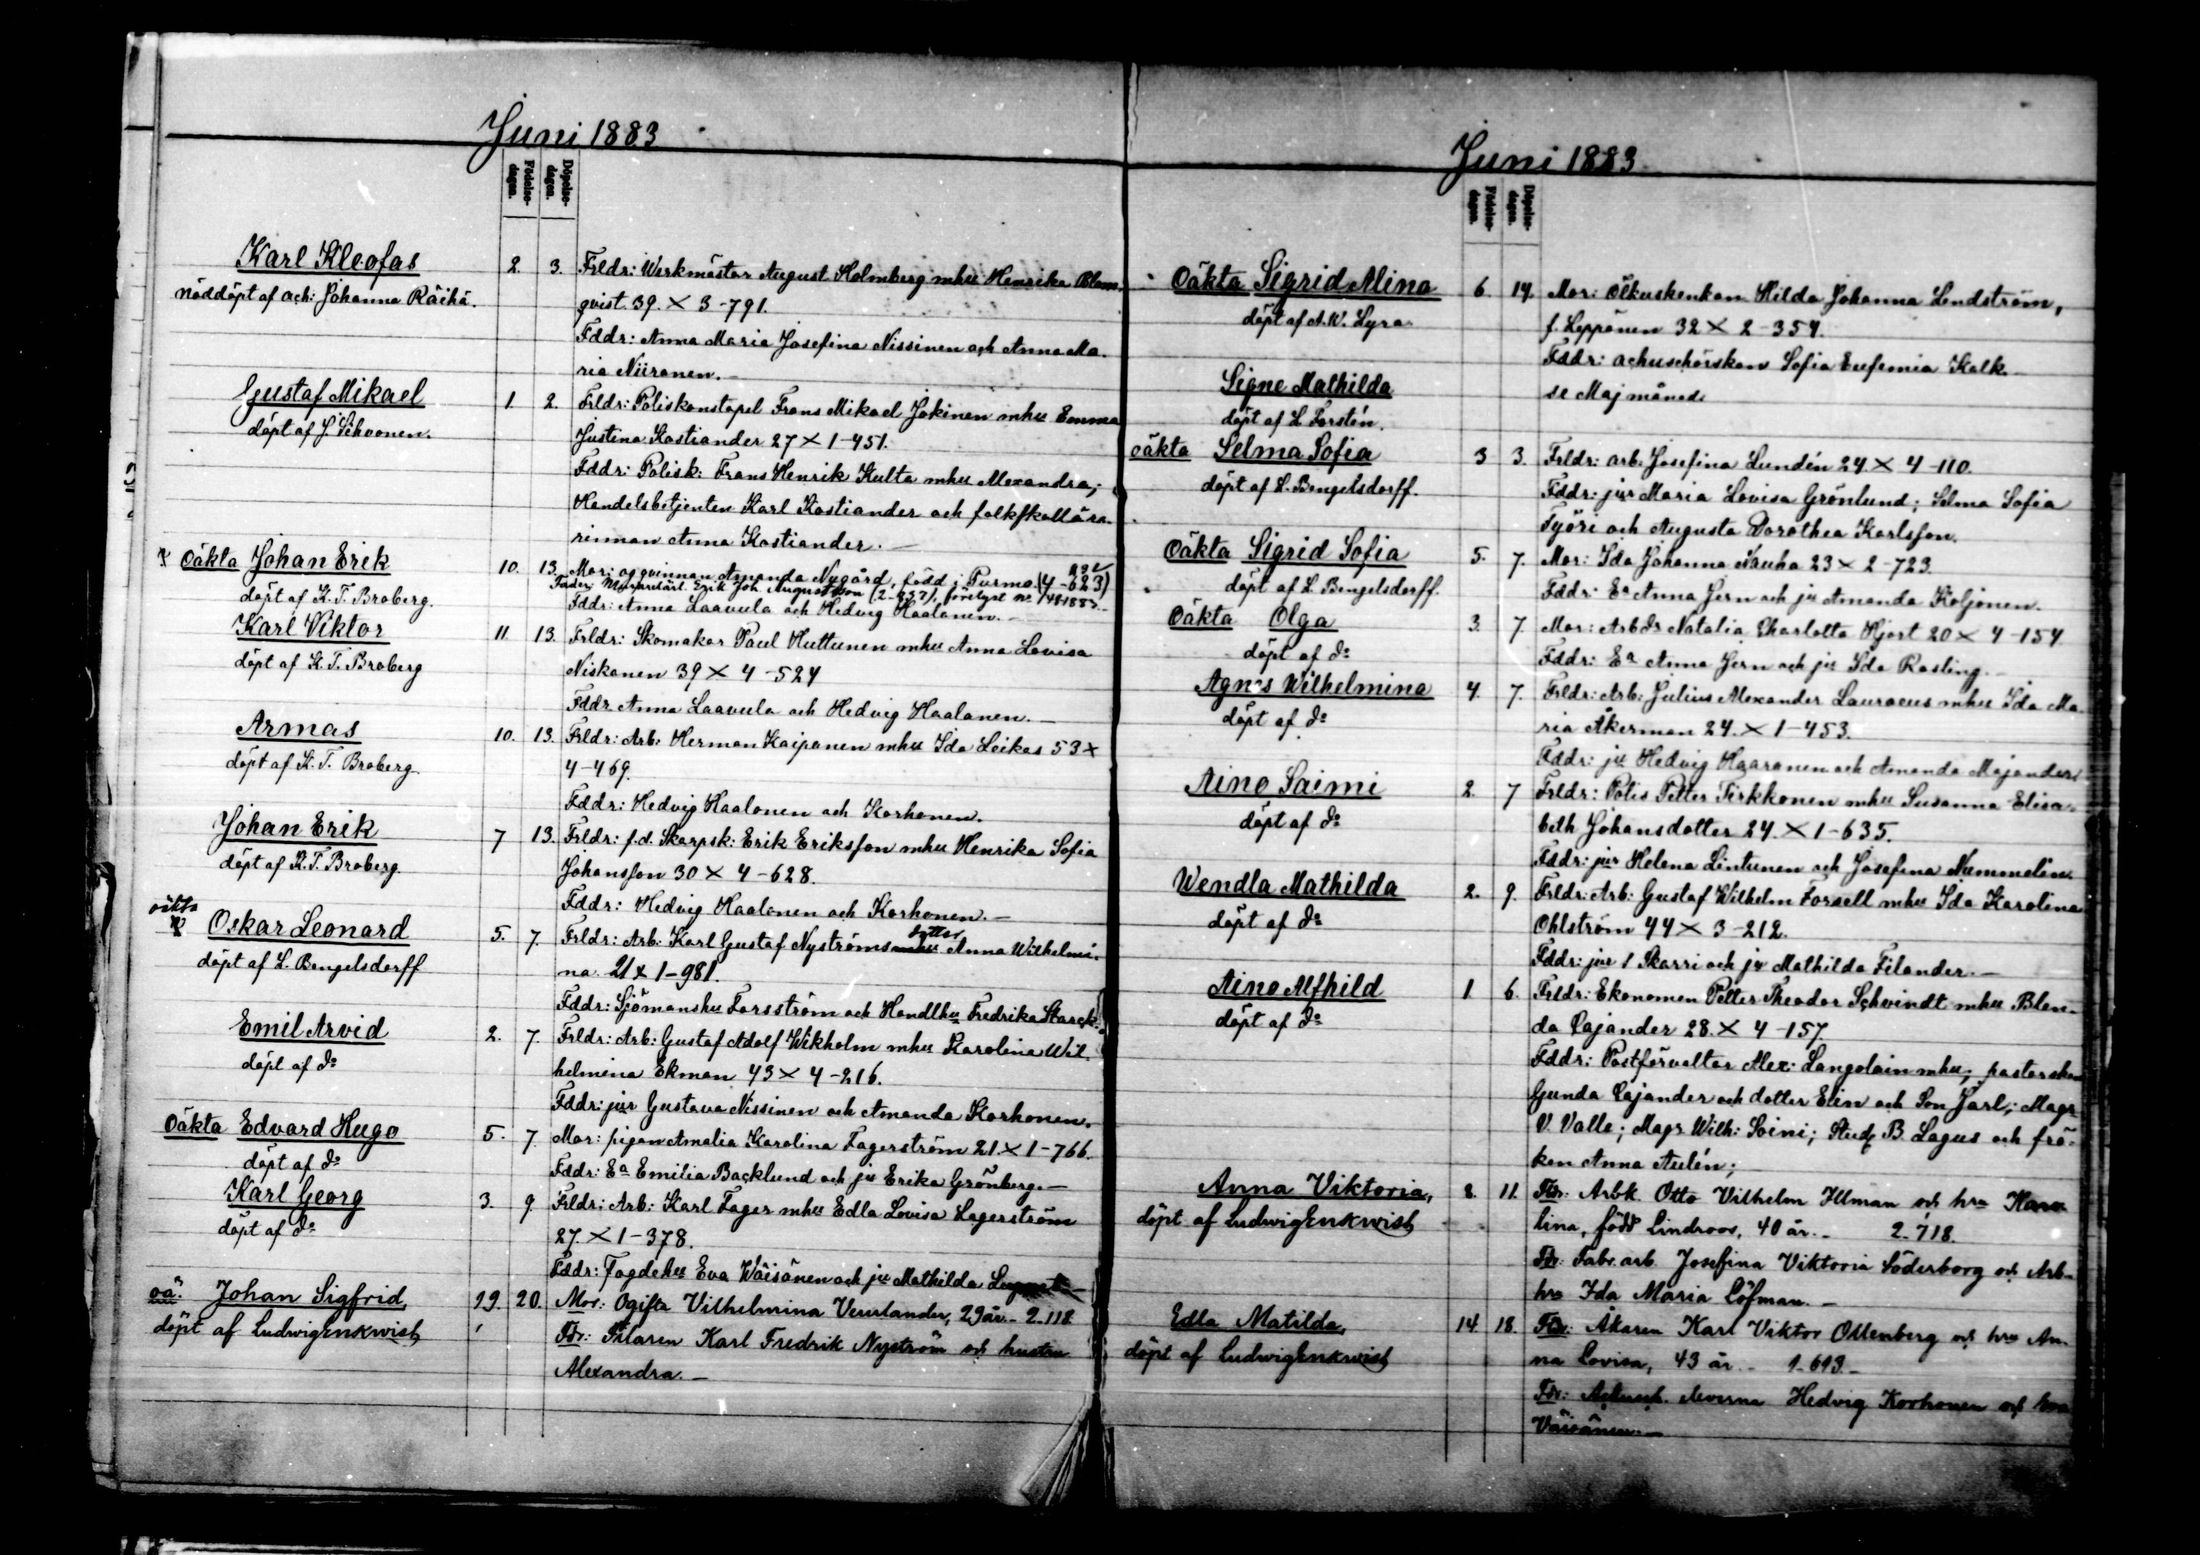 Juni 1883
Födelse-dagen.
Döpelse-dagen.
Karl Kleofas 2. 3. Frldr: Werkmästar August Holmberg mhu Henrika Blom-
nöddöpt af ach: Johanna Räihä. qvist. 39. × 3-791.
Fddr: Anna Maria Josefina Nissinen och Anna Ma-
ria Niiranen.
Gustaf Mikael 1. 2. Frldr: Poliskonstapel Frans Mikael Jokinen mhu Emma
döpt af J. Sihvonen. Justina Kostiander 27 × 1-451.
Fddr: Polisk: Frans Henrik Kulta mhu Alexandra;
Handelsbetjenten Karl Kostiander och folkskollära-
rinnan Anna Kostiander.
Oäkta Johan Erik 10. 13. Mor: qvinnan Amanda Nygård, född i Purmo (4-623)
Fader: Erik Joh. Augustsson
döpt af K. T. Broberg. Fddr: Anna Laavula och Hedvig Haalonen.
Karl Viktor 11. 13. Frldr: Skomakar Paul Huttunen mhu Anna Lovisa
döpt af K. T. Broberg Niskanen 39 × 4-524
Fddr Anna Laavula och Hedvig Haalanen.
Armas 10. 13. Frldr: Arb: Herman Kaipanen mhu Ida Leikas 53 ×
döpt af K. T. Broberg. 4-469.
Fddr: Hedvig Haalonen och Korhonen.
Johan Erik 7 13. Frldr: f.d. Skarpsk: Erik Eriksson mhu Henrika Sofia
döpt af K. T. Broberg. Johansson 30 × 4-628.
Fddr: Hedvig Haalonen och Korhonen.
oäkta
Oskar Leonard 5. 7. Frldr: Arb: Karl Gustaf Nyströms mhu dotter Anna Wilhelmi-
döpt af L. Bengelsdorff na. 21 × 1-981.
Fddr: Sjömanshu Forsström och Handlhu Fredrika Starck.
Emil Arvid 2. 7. Frldr: Arb: Gustaf Adolf Wikholm mhu Karolina Wil-
döpt af do helmina Ekman 43 × 4-216.
Fddr: jur Gustava Nissinen och Amanda Korhonen.
Oäkta Edvard Hugo 5. 7. Mor: pigan Amalia Karolina Fagerström 21. × 1-766.
döpt af do Fddr: Ea Emilia Backlund och ju Erika Grönberg.
Karl Georg 3. 9 Frldr: Arb: Karl Fager mhu Edla Lovisa Lagerström
döpt af do 27. × 1-378.
Fddr: Fogdehu Eva Wäisänen och ju Mathilda
oä: Johan Sigfrid, 19. 20. Mor: Ogifta Vilhelmina Vemlander, 29 år - 2.118
döpt af Ludwig Enkwist Fdr: Filaren Karl Fredrik Nyström och hustru
Alexandra.
Juni 1883.
Födelse-dagen.
Döpelse-dagen.
Oäkta Sigrid Mina 6. 14. Mor: Ölkuskenkan Hilda Johanna Lindström,
döpt af A. W. Lyra. f. Leppänen 32 × 2-354.
Fddr: achuschörskan Sofia Eufemia Kalk.
Signe Mathilda se Maj månad.
döpt af L Forstén.
oäkta Selma Sofia 3 3. Frldr: arb. Josefina Lundén 24. × 4-110.
döpt af L. Bengelsdorff. Fddr: jur Maria Lovisa Grönlund; Selma Sofia
Työri och Augusta Dorothea Karlsson.
Oäkta Sigrid Sofia 5. 7. Mor: Ida Johanna Nauha 23 × 2-723.
döpt af L. Bengelsdorff. Fddr: Ea Anna Jern och ju Amanda Koljonen.
Oäkta Olga 3. 7. Mor: Arbdr Natalia Charlotta Hjort 20 × 4-154
döpt af do Fddr: Ea Anna Jern och ju Ida Rosling.
Agnes Wilhelmina 4. 7. Frldr: Arb: Julius Alexander Lauraeus mhu Ida Ma-
döpt af do ria Åkerman 24. × 1-453.
Fddr: ju Hedvig Haaranen och Amanda Majander.
Aino Saimi 2. 7 Frldr: Polis Petter Tirkkonen mhu Susanna Elisa-
döpt af do beth Johansdotter 24. × 1-635.
Fddr: jur Helena Lintunen och Josefina Nummelin.
Wendla Mathilda 2. 9. Frldr: Arb: Gustaf Wilhelm Forsell mhu Ida Karolina
döpt af do Ohlström 44 × 3-212.
Fddr: jur 1 Skarri och ju Mathilda Filander.
Aino Alfhild 1. 6. Frldr: Ekonomen Petter Theodor Schvindt mhu Blen-
döpt af do da Cajander 28. × 4-157.
Fddr: Postförvaltar Alex: Langolain mhu; pastorskan
Gunda Cajander och dotter Elin och Son Jarl; Magr
V. Valle; Magr Wilh: Soini; Stud B. Lagus och frö-
ken Anna Aulén;
Anna Viktoria, 8. 11. Fdr: Arbk. Otto Vilhelm Illman och hru Karo-
döpt af Ludwig Enkwist lina, född Lindroos, 40 år. 2.718.
Fdr: Fabr. arb Josefina Viktoria Söderborg och Arb-
hru Ida Maria Löfman.
Edla Matilda, 14 18. Fdr: Åkaren Karl Viktor Ollenberg och hru An-
döpt af Ludwig Enkwist na Lovisa, 43 år - 1.693.
Fdr: Hedvig Korhonen och Eva
Väisänen